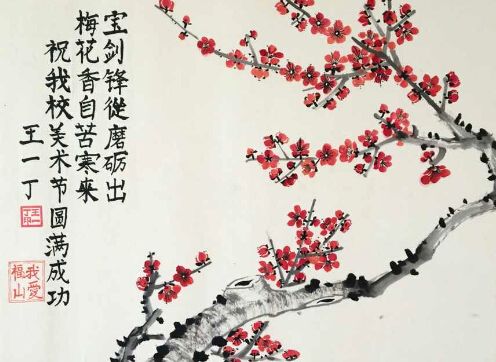 宝剑锋從磨砺出
梅花香自苦寒来
祝我校美术节圆满成功
王一丁
王一丁印
我愛福山